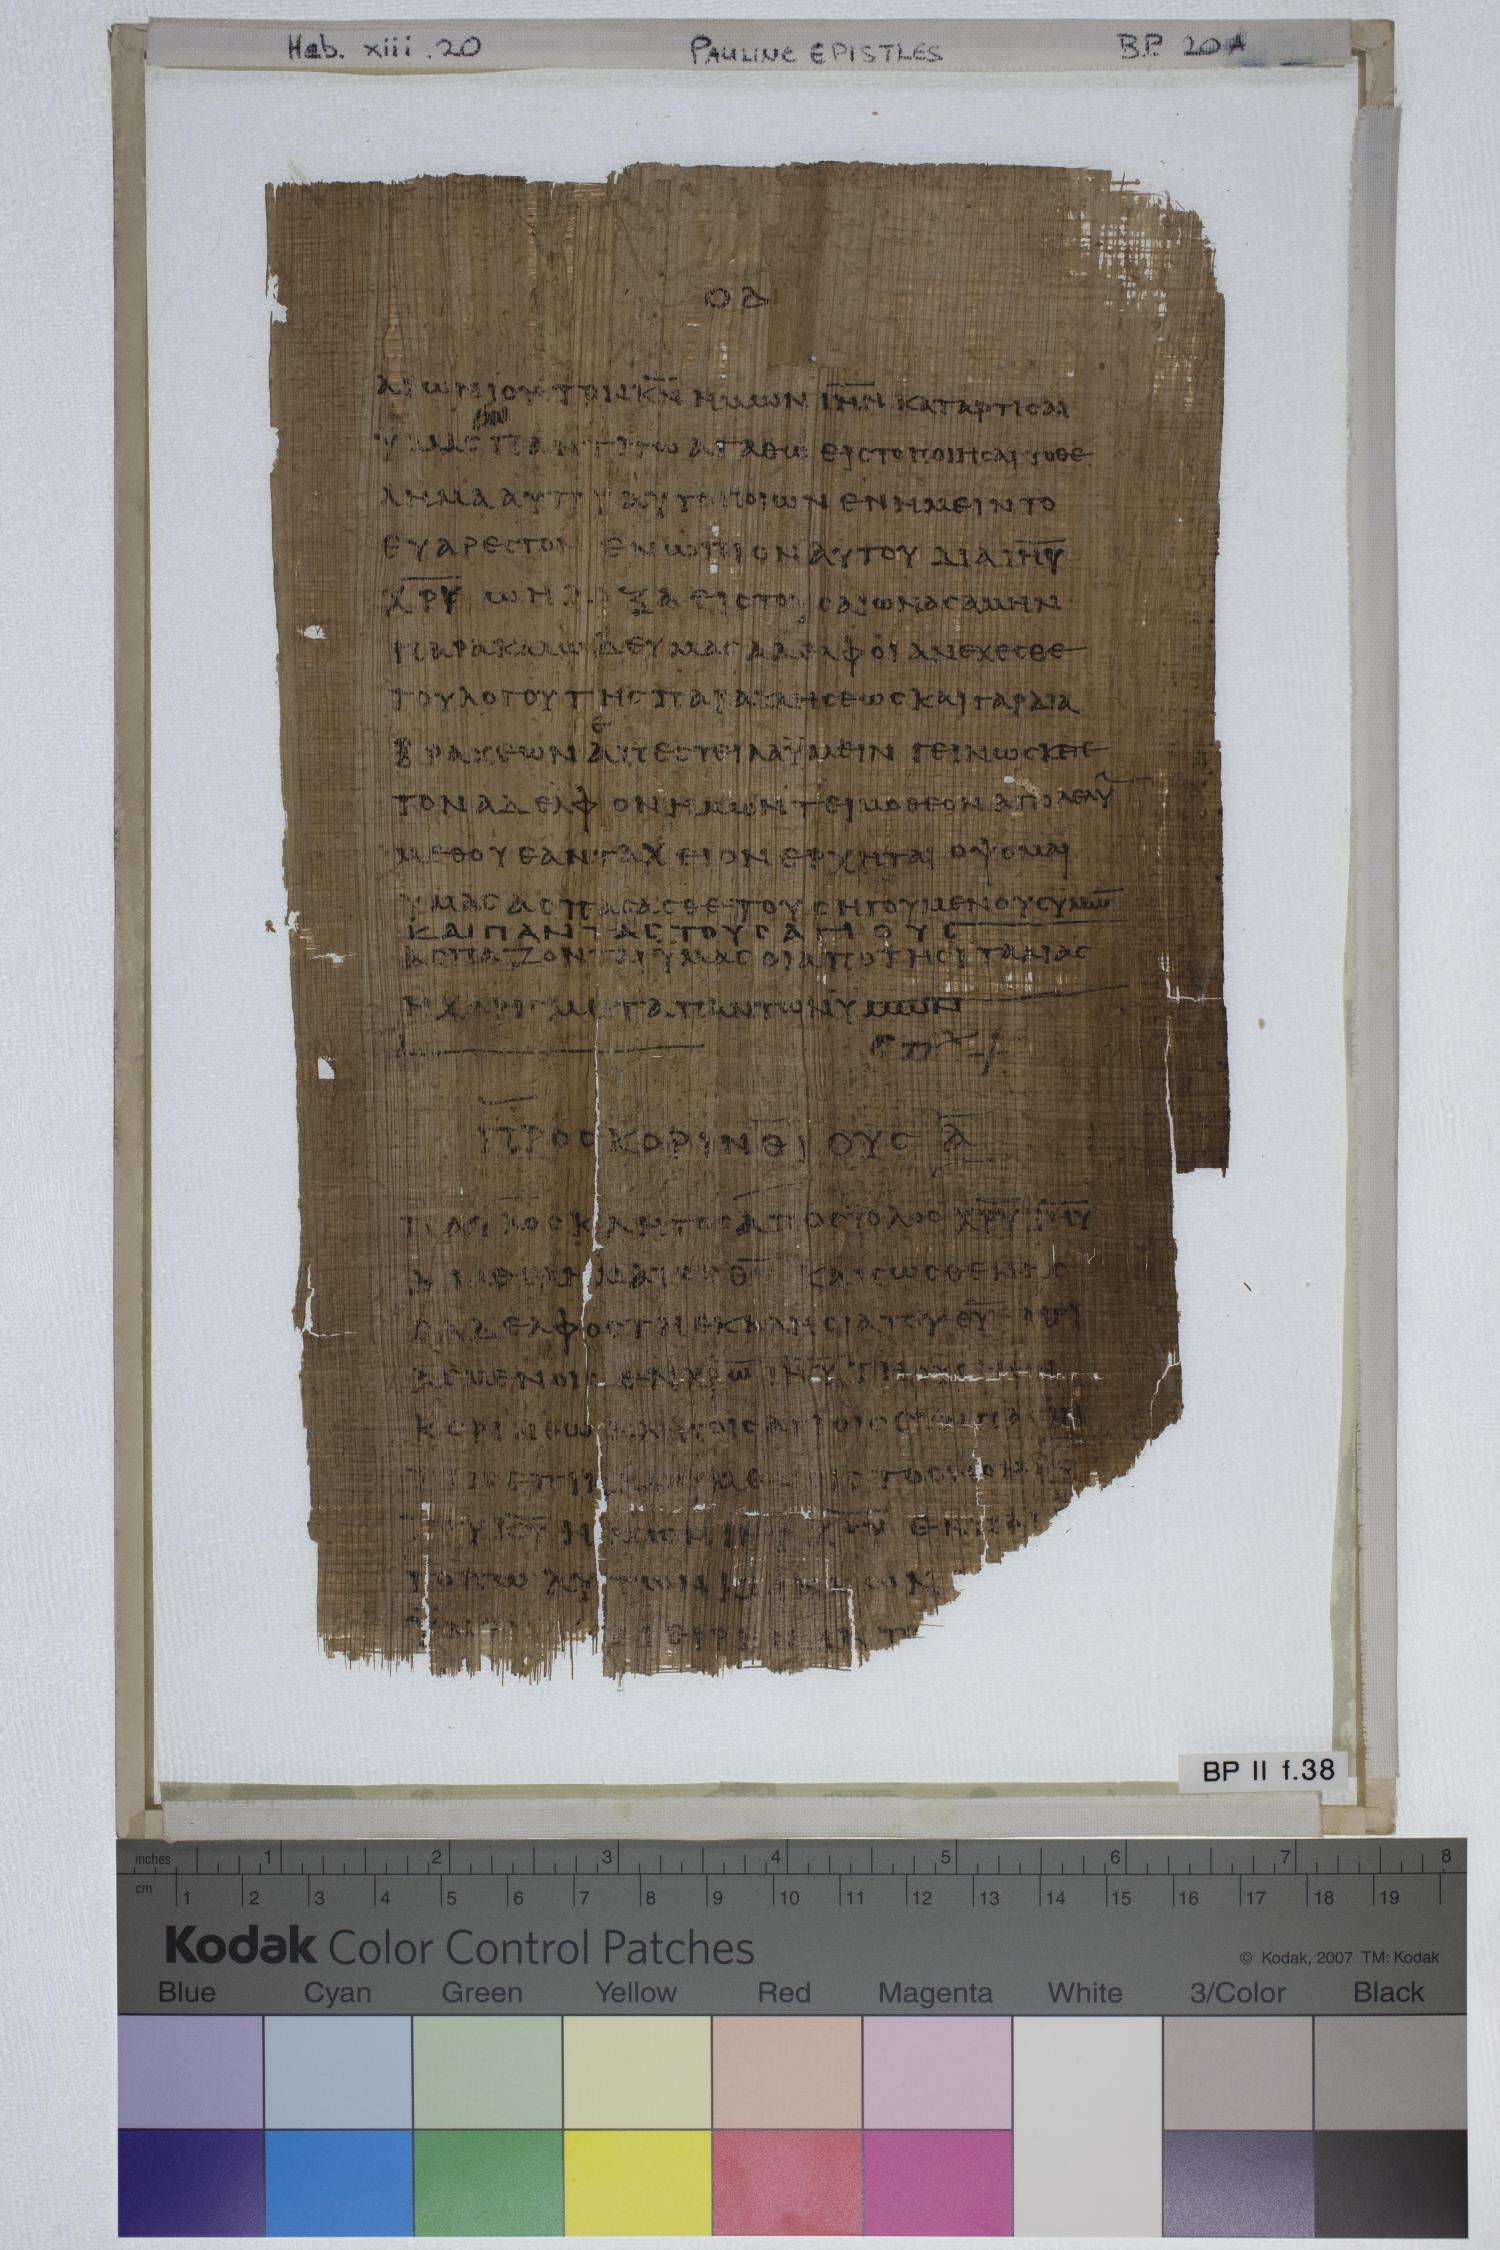 Heb. xiii. 20 PAULINE EPISTLES B.P. 20A
ΟΔ
ΑΙΩΝΙΟΥ ΤΟΝ Κ̅Ν̅ ΗΜΩΝ Ι̅Η̅Ν̅ ΚΑΤΑΡΤΙΣΑΙ
ΥΜΑΣ ΠΑΝΤΙ ΤΩ ΑΓΑΘΩ ΕΙΣ ΤΟ ΠΟΙΗΣΑΙ ΤΟ ΘΕ
ΛΗΜΑ ΑΥΤΟΥ ΑΥΤΟ ΠΟΙΩΝ ΕΝ ΗΜΕΙΝ ΤΟ
ΕΥΑΡΕΣΤΟΝ ΕΝΩΠΙΟΝ ΑΥΤΟΥ ΔΙΑ Ι̅Η̅Υ̅
Χ̅Ρ̅Υ̅ Ω Η ΔΟΞΑ ΕΙΣ ΤΟΥΣ ΑΙΩΝΑΣ ΑΜΗΝ
ΠΑΡΑΚΑΛΩ ΔΕ ΥΜΑΣ ΑΔΕΛΦΟΙ ΑΝΕΧΕΣΘΕ
ΤΟΥ ΛΟΓΟΥ ΤΗΣ ΠΑΡΑΚΛΗΣΕΩΣ ΚΑΙ ΓΑΡ ΔΙΑ
ΒΡΑΧΕΩΝ ΑΠΕΣΤΕΙΛΑ ΥΜΕΙΝ ΓΕΙΝΩΣΚΕΤΕ
ΤΟΝ ΑΔΕΛΦΟΝ ΗΜΩΝ ΤΕΙΜΟΘΕΟΝ ΑΠΟΛΕΛΥ
ΜΕΘ ΟΥ ΕΑΝ ΤΑΧΕΙΟΝ ΕΡΧΗΤΑΙ ΟΨΟΜΑΙ
ΥΜΑΣ ΑΣΠΑΣΑΣΘΕ ΤΟΥΣ ΗΓΟΥΜΕΝΟΥΣ ΥΜΩ̅
ΚΑΙ ΠΑΝΤΑΣ ΤΟΥΣ ΑΓΙΟΥΣ
ΑΣΠΑΖΟΝΤΑΙ ΥΜΑΣ ΟΙ ΑΠΟ ΤΗΣ ΙΤΑΛΙΑΣ
Η ΧΑΡΙΣ ΜΕΤΑ ΠΑΝΤΩΝ ΥΜΩΝ
ΠΡΟΣ ΚΟΡΙΝΘΙΟΥΣ Α̅
ΠΑΥΛΟΣ ΚΛΗΤΟΣ ΑΠΟΣΤΟΛΟΣ Χ̅Ρ̅Υ̅ Ι̅Η̅Υ̅
ΔΙΑ ΘΕΛΗΜΑΤΟΣ Θ̅Υ̅ ΚΑΙ ΣΩΣΘΕΝΗΣ
Ο ΑΔΕΛΦΟΣ ΤΗ ΕΚΚΛΗΣΙΑ ΤΟΥ Θ̅Υ̅ ΗΓΙ
ΑΣΜΕΝΟΙΣ ΕΝ Χ̅Ρ̅Ω̅ Ι̅Η̅Υ̅ ΤΗ ΟΥΣΗ ΕΝ
ΚΟΡΙΝΘΩ ΚΛΗΤΟΙΣ ΑΓΙΟΙΣ ΣΥΝ ΠΑΣΙΝ
BP II f.38
inches 1 2 3 4 5 6 7 8
cm 1 2 3 4 5 6 7 8 9 10 11 12 13 14 15 16 17 18 19
Kodak Color Control Patches © Kodak, 2007 TM: Kodak
Blue Cyan Green Yellow Red Magenta White 3/Color Black